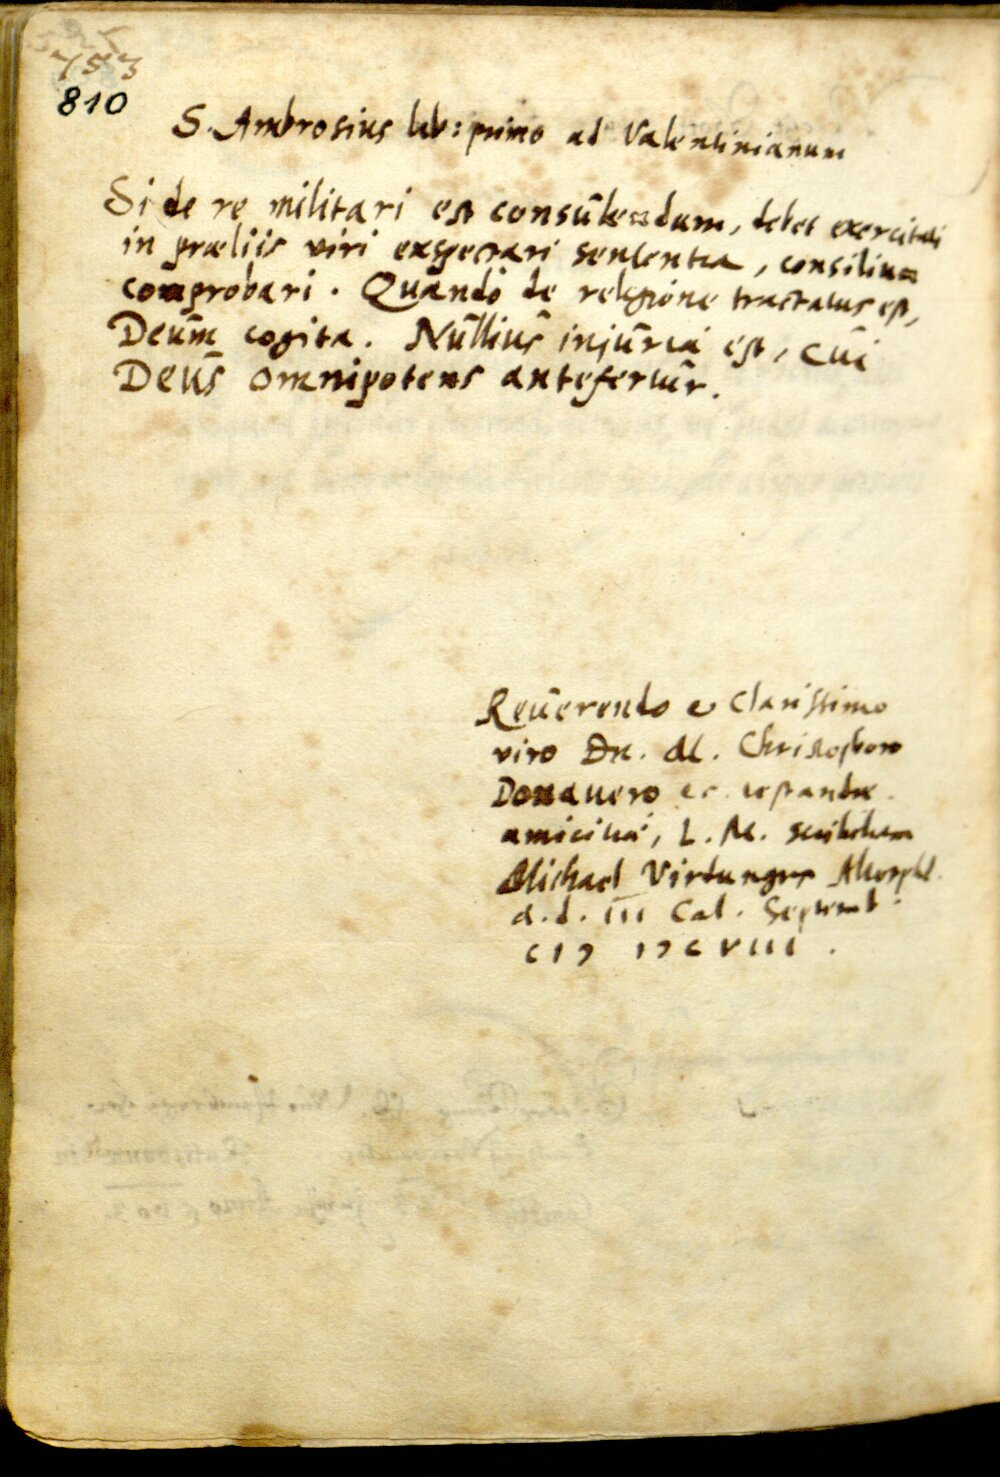 753
810
S. Ambrosius lib: primo ad Valentinianum
Si de re militari est consulendum, debet exercitati
in præliis viri exspectari sententia, consilium
comprobari. Quando de religione tractatus est,
Deum cogita. Nullius injuria est, cui
Deus omnipotens antefertur.
Reverendo et Clarissimo
viro Dn. M. Christophoro
Donavero
amicitiæ, L. M. scribebam
Michael Virdungus
a. d. III Cal. Septemb.
CIↃ IↃCVIII.